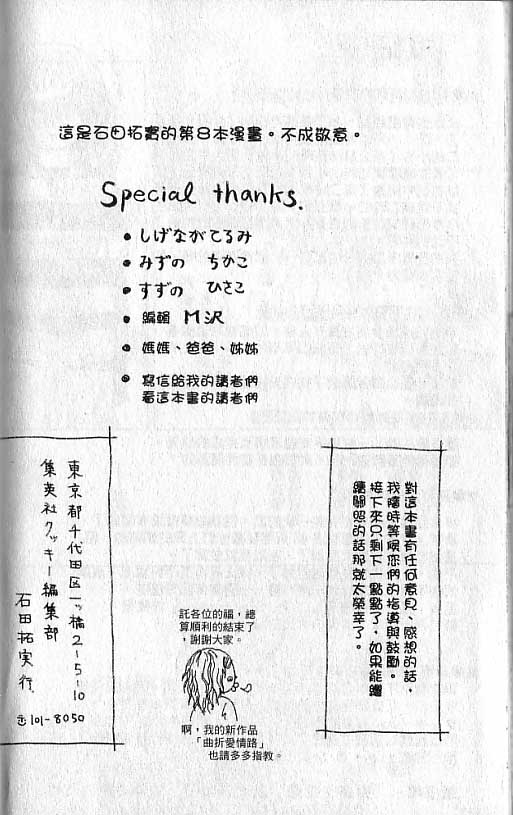 這是石田拓實的第8本漫畫。不成敬意。
Special thanks.
• しげながてるみ
• みずの ちかこ
• すずの ひさこ
• 編輯 M沢
• 媽媽、爸爸、姊姊
• 寫信給我的讀者們
看這本書的讀者們
對這本書有任何意見、感想的話，
我隨時等候您們的指導與鼓勵。
接下來只剩下一點點了，如果能繼
續關照的話那就太榮幸了。
託各位的福，總
算順利的結束了
，謝謝大家。
啊，我的新作品
「曲折愛情路」
也請多多指教。
東京都千代田区一ッ橋2-5-10
集英社クッキー編集部
石田拓実行.
〒101-8050